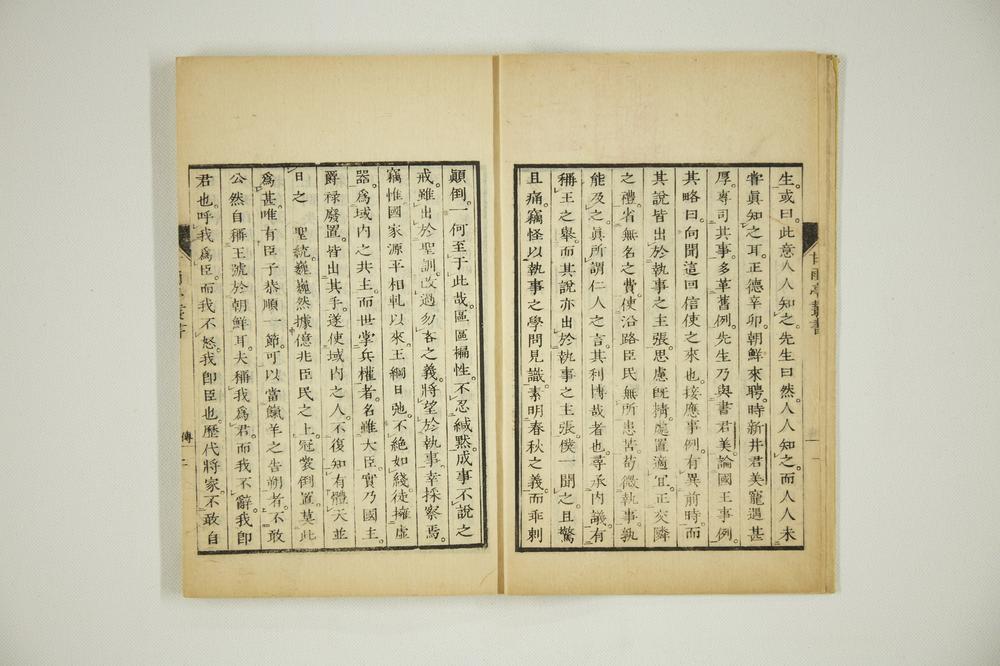 生或曰。此意人人知之。先生曰然。人人知之。而人人未
嘗眞知之耳。正德辛卯。朝鮮來聘。時新井君美。寵遇甚
厚。專司其事。多革舊例。先生乃與書君美。論國王事例。
其略曰。向聞這回信使之來也。接應事例。有異前時。而
其說皆出於執事之主張。思慮既精。處置適宜。正交隣
之禮。省無名之費。使沿路臣民。無所患苦。苟微執事。孰
能及之。眞所謂仁人之言。其利博哉者也。尋承内議。有
稱王之舉。而其說亦出於執事之主張。僕一聞之。且驚
且痛。竊怪以執事之學問見識。素明春秋之義。而乖剌
顚倒。一何至于此哉。區區褊性。不忍緘默。成事不說之
戒。雖出於聖訓。改過勿吝之義。將望於執事。幸採察焉。
竊惟國家源平相軋以來。王綱日弛。不絕如綫。徒擁虛
器。爲域内之共主。而世掌兵權者。名雖大臣。實乃國主。
爵祿廢置。皆出其手。遂使域内之人。不復知有體天並
日之 聖統。巍巍然據億兆臣民之上。冠裳倒置。莫此
爲甚。唯有臣子恭順一節。可以當餼羊之告朔者。不敢
公然自稱王號於朝鮮耳。夫稱我爲君。而我不辭。我卽
君也。呼我爲臣。而我不怒。我卽臣也。歷代將家。不敢自
甘雨亭叢書
傳